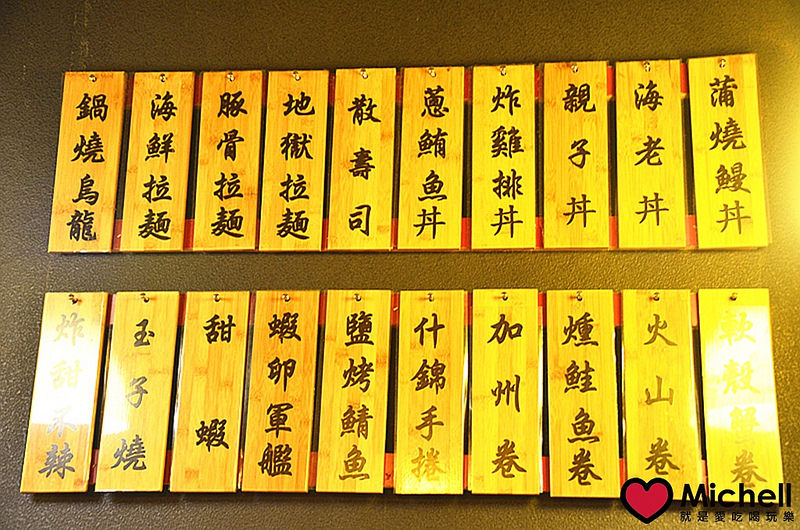 蒲燒鰻丼
海老丼
親子丼
炸雞排丼
蔥鮪魚丼
散壽司
地獄拉麵
豚骨拉麵
海鮮拉麵
鍋燒烏龍
軟殼蟹卷
火山卷
燻鮭魚卷
加州卷
什錦手捲
鹽烤鯖魚
蝦卵軍艦
甜蝦
玉子燒
炸甜不辣
Michell
就是愛吃喝玩樂